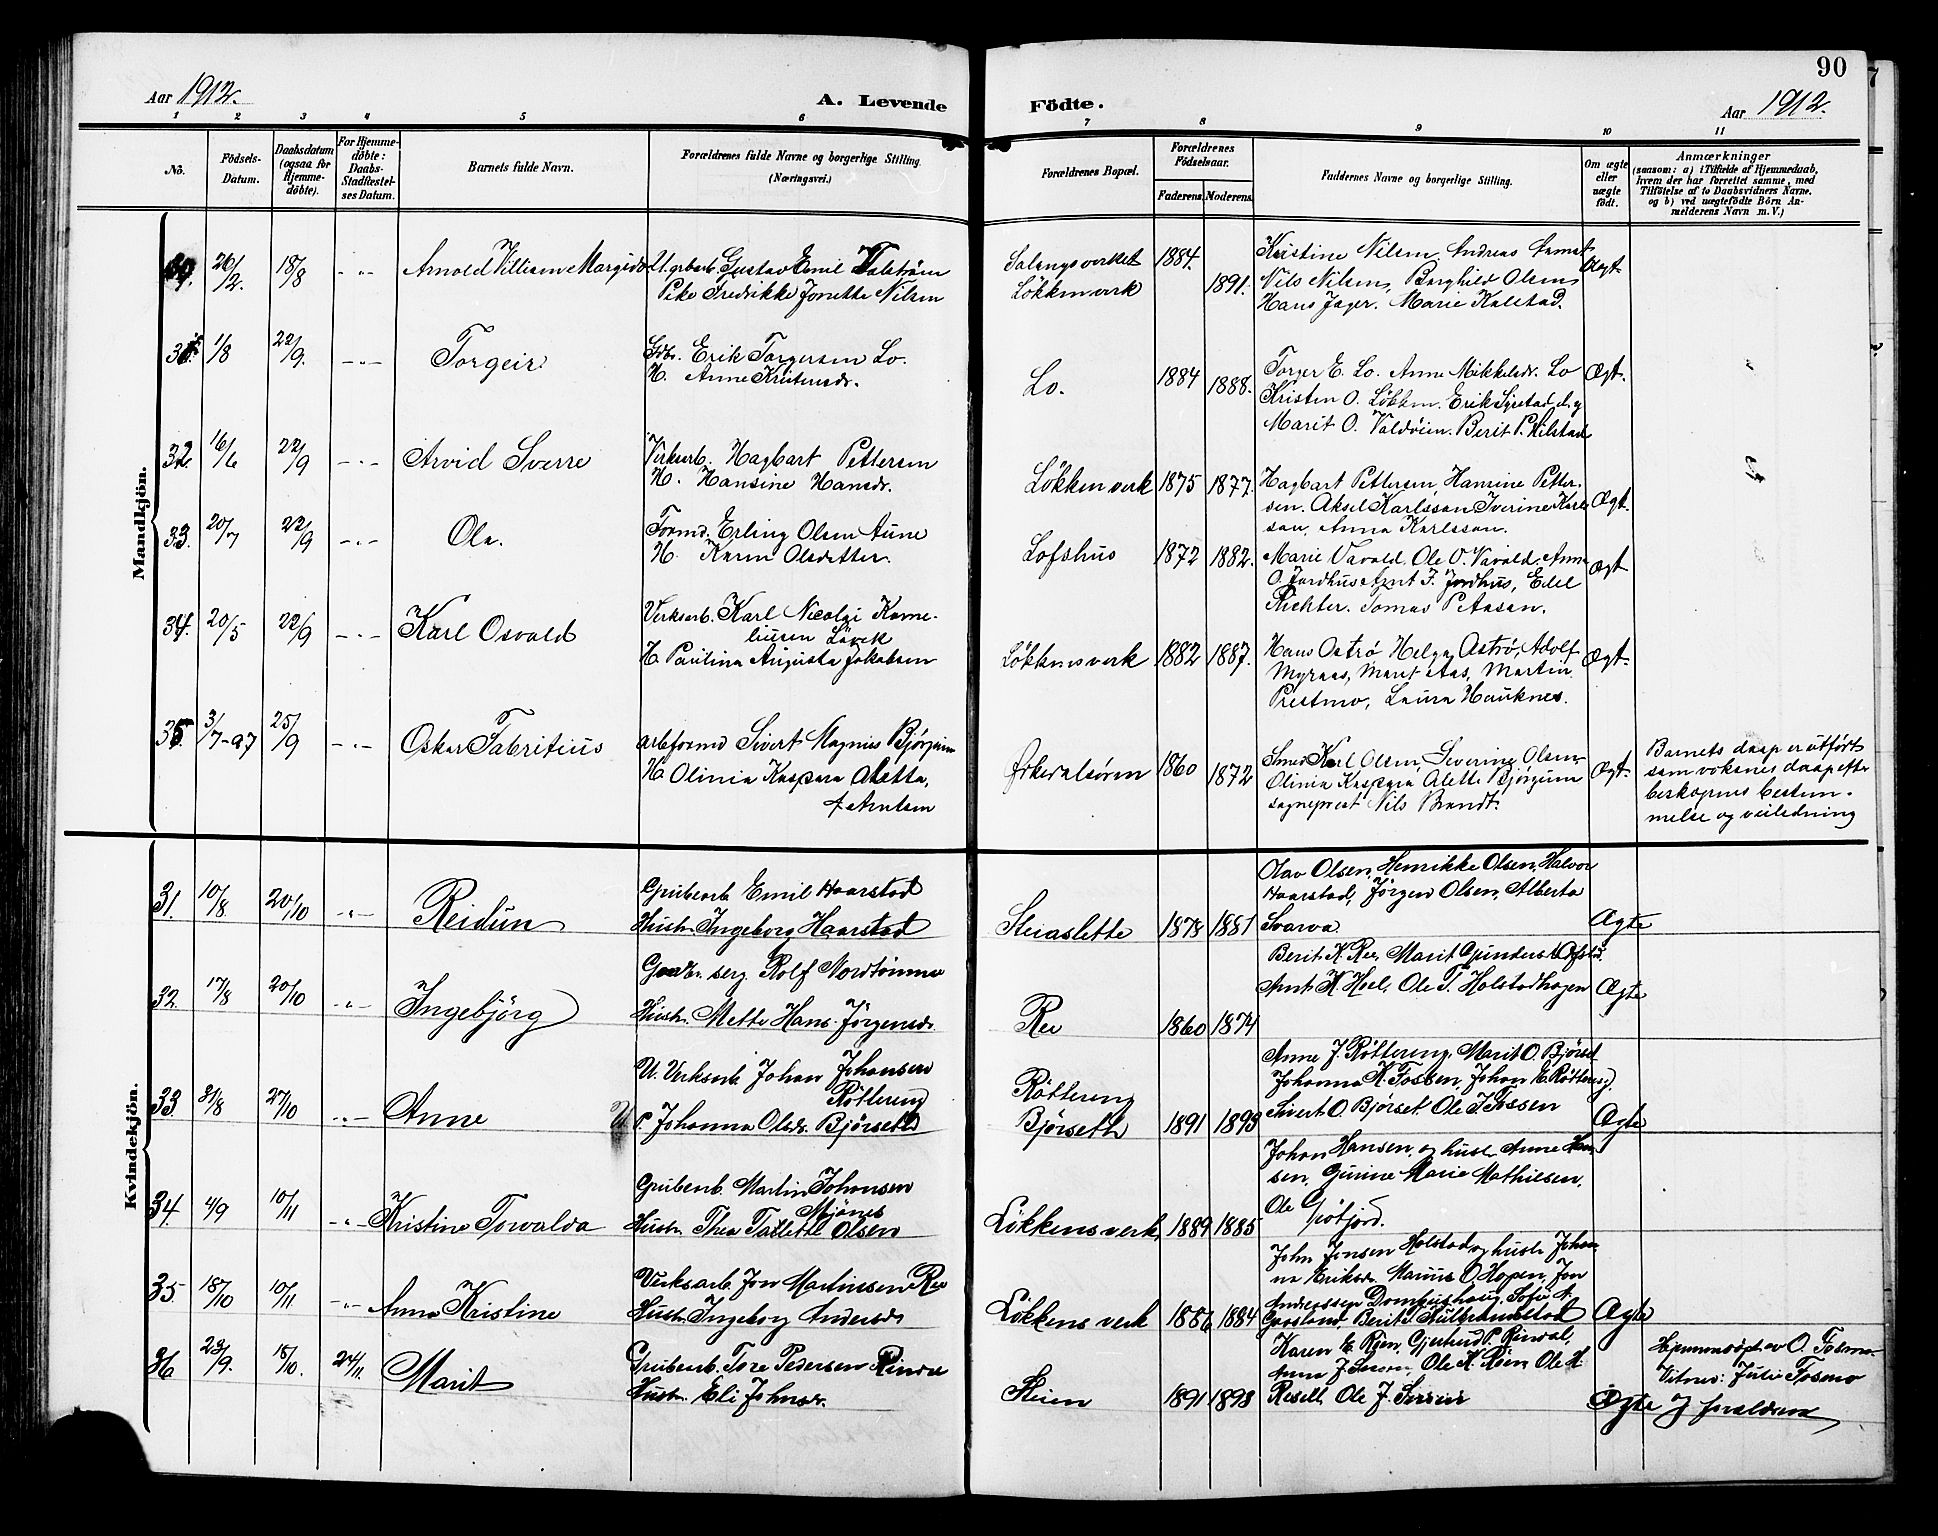 90
Aar 1912.
A. Levende Födte.
Aar 1912.
1 2 3 4 5 6 7 8 9 10 11
No.
Födsels-
Datum.
Daabsdatum
(ogsaa for
Hjemme-
döbte).
For Hjemme-
döbte:
Daabs-
Stadfæstel-
ses Datum.
Barnets fulde Navn.
Forældrenes fulde Navne og borgerlige Stilling.
(Næringsvei.)
Forældrenes Bopæl.
Forældrenes
Födselsaar.
Faderens.
Moderens.
Faddernes Navne og borgerlige Stilling.
Om ægte
eller
uægte
födt.
Anmærkninger
(saasom: a) i Tilfælde af Hjemmedaab,
hvem der har forrettet samme, med
Tilföielse af to Daabsvidners Navne,
og b) ved uægtefödte Börn An-
melderens Navn m. V.)
Mandkjön.
26/2 18/8 - " - Arnold Villiam
Gustav Emil
Fredrikke Jonette Nilsen
Løkkenverk
1884. 1891.
Kristine Nilsen, Andreas
Nils Nilsen, Borghild Olsen,
Hans Jager. Marie Kalstad.
1/8 22/9. - " - Torgeir
Gdbr. Erik Torgersen Lo.
H. Anne Kristensdr.
Lo. 1884 1888.
Torger E. Lo. Anne Mikkelsdr. Lo
Kristen O. Løkken. Erik
Marit O.
Ægt.
32. 16/6 22/9 - " - Arvid Sverre
Verksarb. Hagbart Pettersen
H. Hansine Hansdr.
Løkkenverk 1875 1877.
Hagbart Pettersen, Hansine Petter-
sen. Aksel Karlsson Iverine Karls-
son, Anna Karlsson.
Ægt.
33. 20/7 22/9 - " - Ola.
Formd. Erling Olsen Aune
H. Karen Olsdatter.
Lofshus 1872 1882.
Marie Vavold, Ole O. Vavold. Anne
O. Jordhus Arnt J. Jordhus, Edel
Richter. Tomas
Ægt
34. 20/5 22/9 - " - Karl Osvald
Verksarb. Karl Nicolai Korne-
liusen
H. Paulina Augusta Jakobsen
Løkkensverk 1882 1887.
Hans Helga Adolf
Myraas, Marit Aas, Martin
Prestmo, Laura Hauknes.
Ægt.
35. 3/7-97 25/9 - " - Oskar Fabritius
arbformd Sivert Magnus Bjørgum
H. Olinia Kaspara Aletta,
f. Arntsen
Ørkedalsøren 1860 1872
Smed Karl Olsen, Severine Olsen
Olinia Kaspara Alette Bjørgum
sogneprest Nils Brandt.
Ægt.
Barnets daap er utført
som voksnes daap efter
biskopens bestem-
melse og veiledning
Kvindekjön.
31. 10/8 20/10 - " - Reidun
Grubearb Emil Haarstad
Hustr. Ingeborg Haarstad
Steiaslette 1878 1881
Olav Olsen, Henrikke Olsen, Halvor
Haarstad, Jørgen Olsen, Alberta
Svarva.
Ægte
32. 17/8 20/10 " - Ingebjörg
serg. Rolf Nordtømme
Hustr. Mette Hans Jørgensdr
Ree 1860 1874
Berit K. Ree, Marit
Arnt K. Hoel, Ole T. Holstadhagen
Ægte
33. 31/8 27/10 - " - Anne
U. Verksarb Johan Johansen
Røttereng
P. Johanna Olsdr. Bjørseth
Røttereng
Bjørseth 1891 1893
Anne J. Røttereng, Marit O. Bjørset
Johanna K. Fossen, Johan E. Røttereng,
Sivert O Bjørset Ole J Fossen
Ægte
34. 4/9 10/11 - " - Kristine Torvalda
Grubearb. Martin Johansen
Mjönes
Hustr. Thea Olsen
Løkkensverk, 1889 1885
Johan Hansen, og hustr. Anne Han-
sen, Gurine Marie Mathilsen,
Ole
35. 18/10 10/11. - " - Anna Kristine
Verksarb. Jon Martinssen Ree
Hustr. Ingeborg Andersdr
Løkkens verk 1886 1884
John Jonsen Holstad og hustr Johan-
na Eriksdr. Marius O. Hopen, Jon
Andreassen Sofie
Berit
Ægte
36 23/9. 18/10. 24/11. Marit
Grubearb. Tore Pedersen Rindal
Hustr. Eli Johnsdr.
Steien 1891 1893
Karen E. Røen, Gjertrud P. Rindal,
Anna Ole K. Røen Ole H.
Resell, Ole J.
Ægte
Hjemmedøpt av O. Fosmo
Vitner: Julie Fosmo